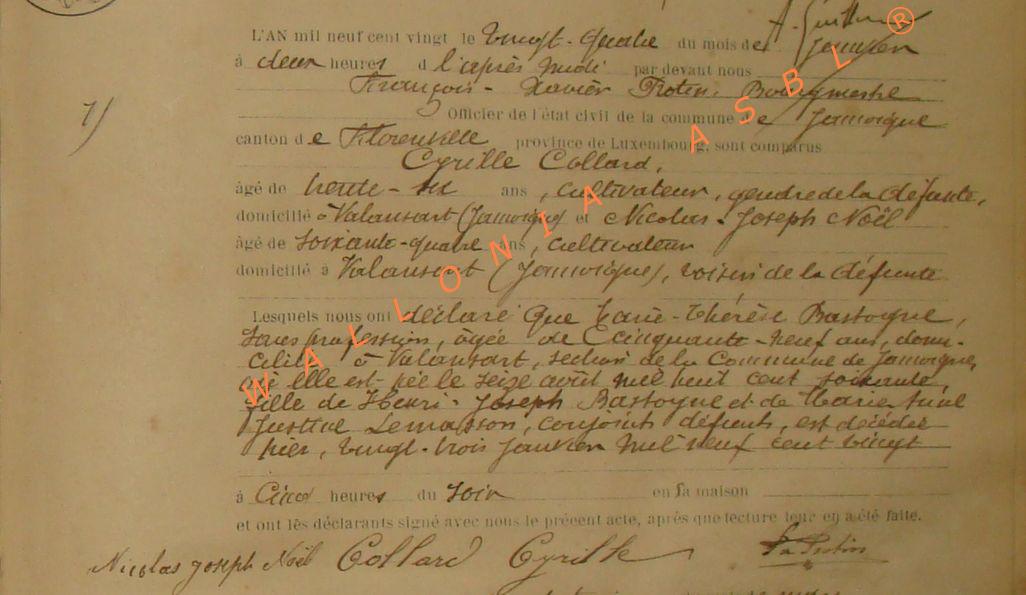 A. Guillaume
L'AN mil neuf cent vingt le vingt-quatre du mois de Janvier
à deux heures d l'après midi par devant nous
François-Xavier Protin, Bourgmestre
Officier de l'état civil de la commune de Jamoigne
canton de Florenville province de Luxembourg, sont comparus
7)
Cyrille Collard,
âgé de trente-six ans, cultivateur, gendre de la défunte,
domicilié à Valansart (Jamoigne) et Nicolas-Joseph Noël
âgé de soixante-quatre ans, cultivateur
domicilié à Valansart (Jamoigne), voisin de la défunte
Lesquels nous ont déclaré que Marie-Thérèse Bastogne,
sans profession, âgée de Cinquante-neuf ans, domi-
ciliée à Valansart, section de la Commune de Jamoigne,
où elle est née le seize août mil huit cent soixante,
fille de Henri-Joseph Bastogne et de Marie
Justine Lemasson, conjoints défunts, est décédée
hier, vingt-trois janvier mil neuf cent vingt
à Cinq heures du soir en sa maison
et ont les déclarants signé avec nous le présent acte, après que lecture leur en a été faite.
Nicolas Joseph Noël Collard Cyrille Protin
WALLONIA ASBL ®